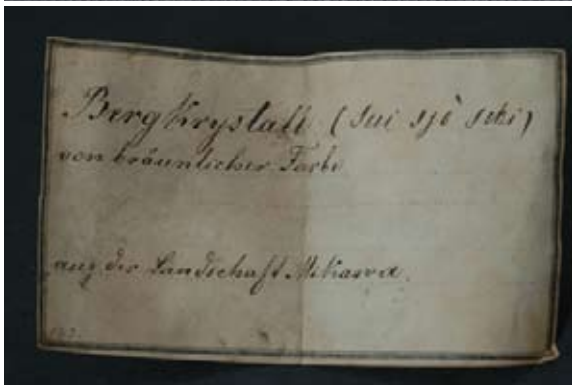 Bergkrystall (Sui sjô seki)
von bräunlicher Farbe
aus der Landschaft Mikawa.